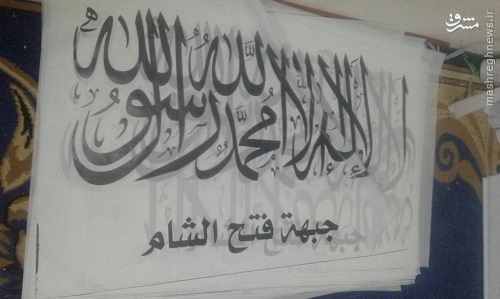 لا إله إلا الله محمد رسول الله
جبهة فتح الشام
مشرق
mashreghnews.ir